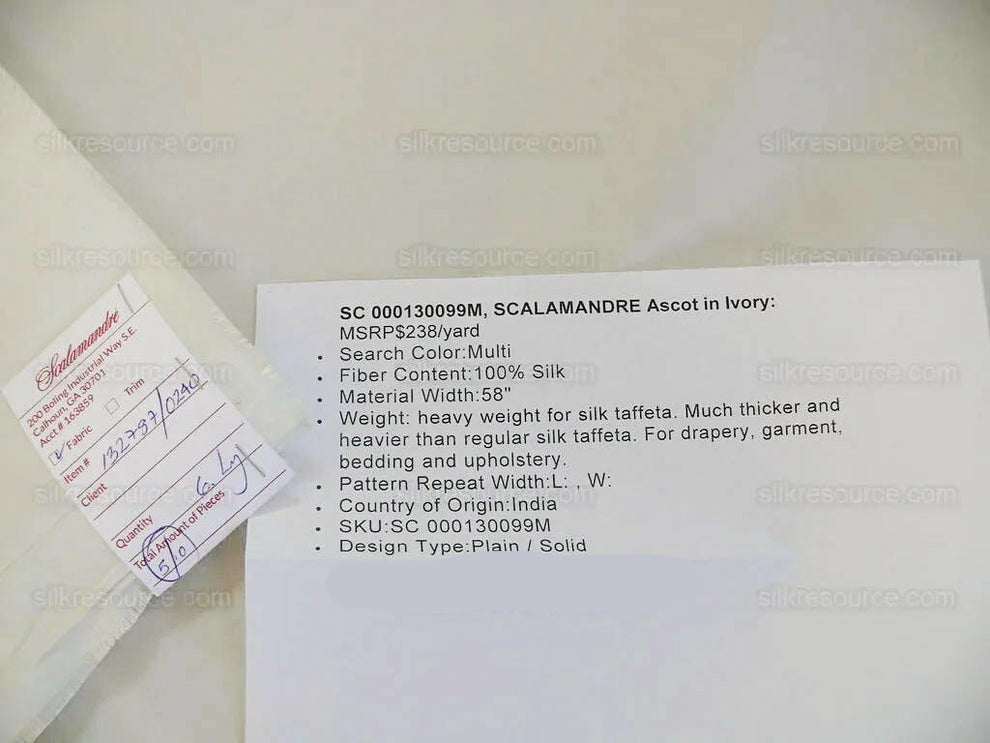 silkresource.com silkresource.com silkresource.com
silkresource.com silkresource.com silkresource.com
SC 000130099M, SCALAMANDRE Ascot in Ivory:
MSRP$238/yard
• Search Color:Multi
• Fiber Content:100% Silk
• Material Width:58"
• Weight: heavy weight for silk taffeta. Much thicker and
heavier than regular silk taffeta. For drapery, garment,
bedding and upholstery.
• Pattern Repeat Width:L: , W:
• Country of Origin:India
• SKU:SC 000130099M
• Design Type:Plain / Solid
Scalamandré
200 Boling Industrial Way S.E.
Calhoun, GA 30701
Acct # 163859
Fabric Trim
Item # 132797/0240
Client
Quantity
Total Amount of Pieces
silkresource.com silkresource.com silkresource.com
silkresource.com silkresource.com silkresource.com
silkresource.com silkresource.com